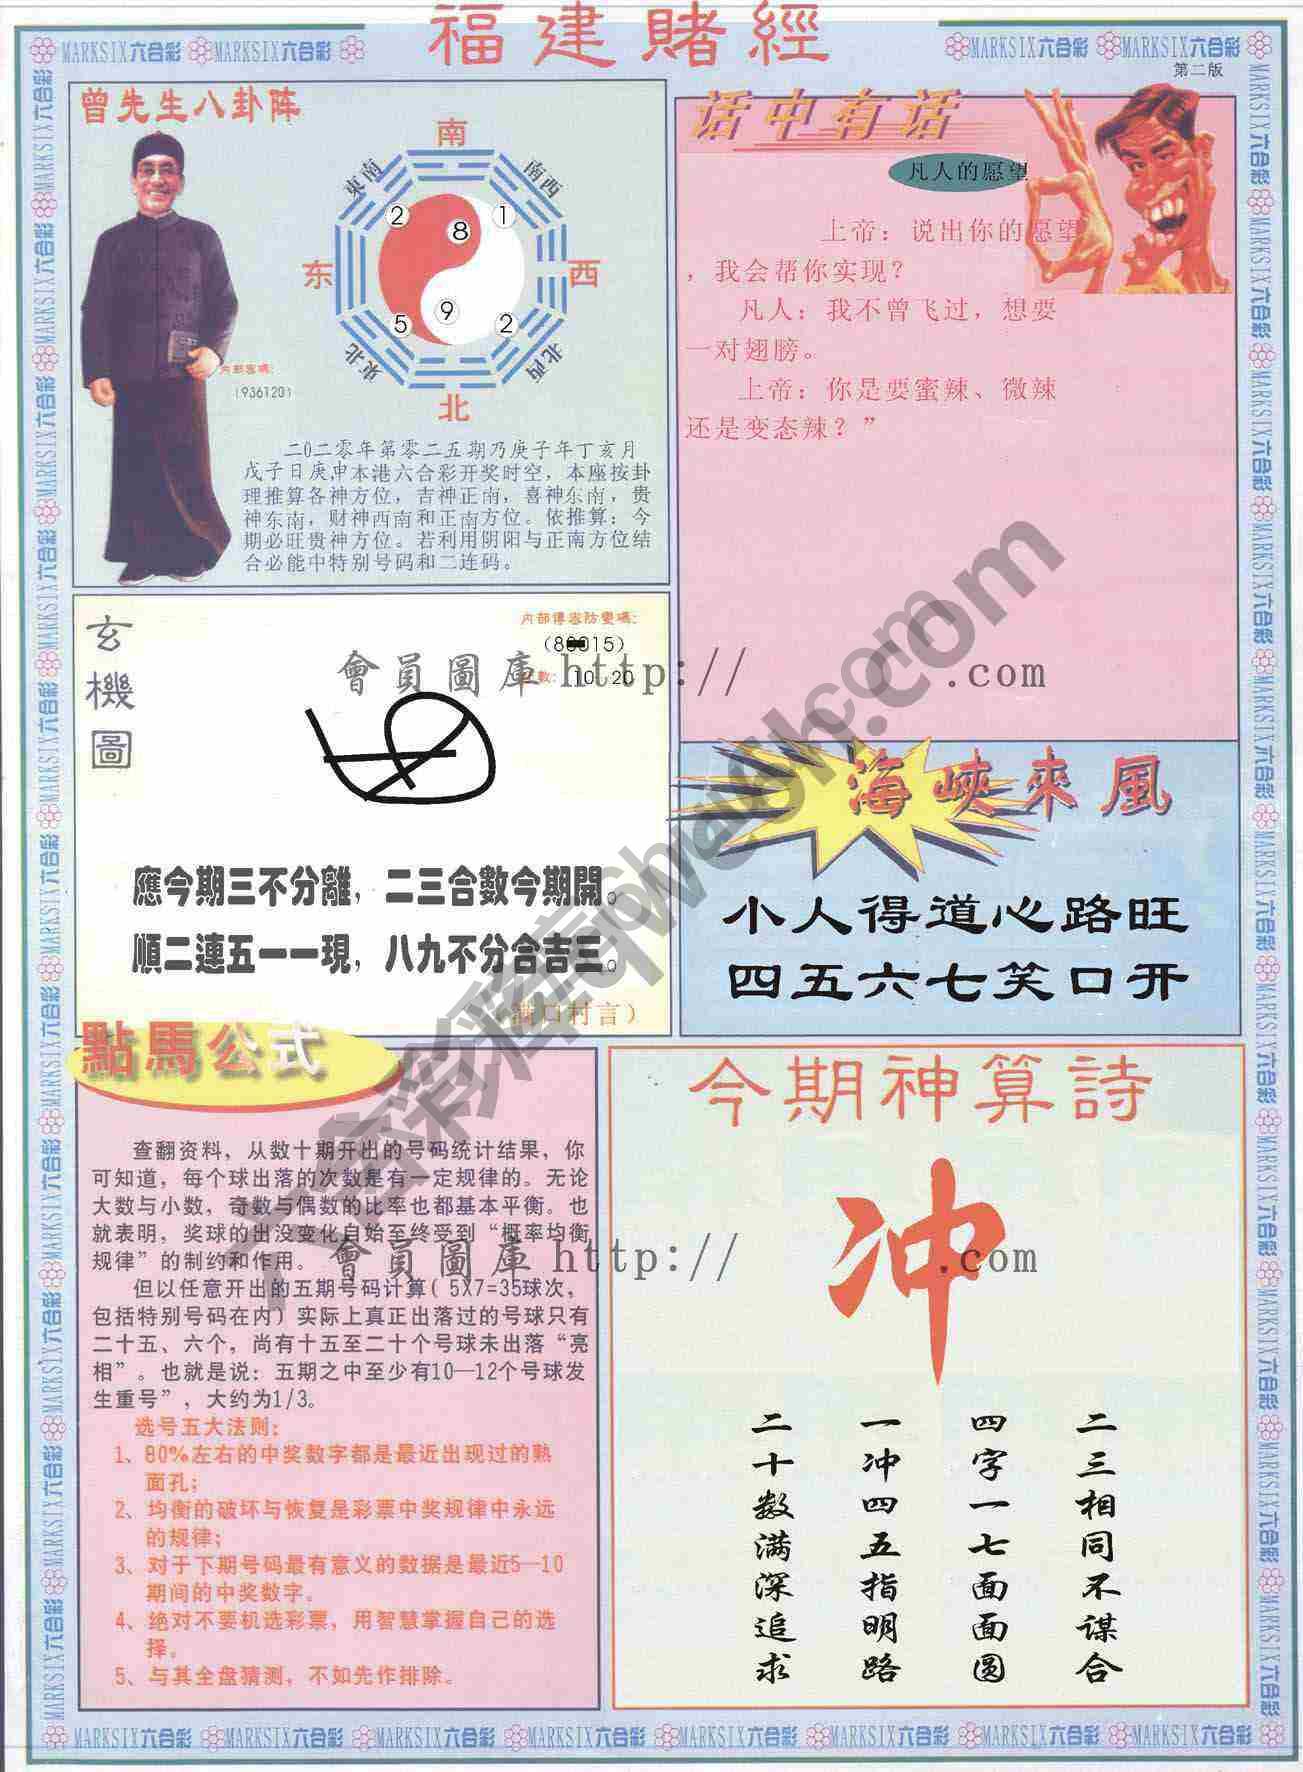 福建賭經
MARKSIX六合彩 MARKSIX六合彩
MARKSIX六合彩 MARKSIX六合彩
第二版
曾先生八卦阵
南
東南
南西
2
8
1
东
西
5
9
2
東北
北西
北
内部密碼：
(936120)
二0二零年第零二五期乃庚子年丁亥月
戊子日庚申本港六合彩开奖时空，本座按卦
理推算各神方位，吉神正南，喜神东南，贵
神东南，财神西南和正南方位。依推算：今
期必旺贵神方位。若利用阴阳与正南方位结
合必能中特别号码和二连码。
话中有话
凡人的愿望
上帝：说出你的愿望
，我会帮你实现？
凡人：我不曾飞过，想要
一对翅膀。
上帝：你是要蜜辣、微辣
还是变态辣？”
玄機圖
内部傳密防變碼：
數：10 20
會員圖庫 http:// .com
應今期三不分離，二三合數今期開。
順二連五一一現，八九不分合吉三。
满口村言）
海峽來風
小人得道心路旺
四五六七笑口开
點馬公式
查翻资料，从数十期开出的号码统计结果，你
可知道，每个球出落的次数是有一定规律的。无论
大数与小数，奇数与偶数的比率也都基本平衡。也
就表明，奖球的出没变化自始至终受到“概率均衡
规律”的制约和作用。
但以任意开出的五期号码计算( 5X7=35球次，
包括特别号码在内）实际上真正出落过的号球只有
二十五、六个，尚有十五至二十个号球未出落“亮
相”。也就是说：五期之中至少有10—12个号球发
生重号”，大约为1/3。
选号五大法则：
1、80%左右的中奖数字都是最近出现过的熟
面孔；
2、均衡的破坏与恢复是彩票中奖规律中永远
的规律；
3、对于下期号码最有意义的数据是最近5—10
期间的中奖数字。
4、绝对不要机选彩票，用智慧掌握自己的选
择。
5、与其全盘猜测，不如先作排除。
會員圖庫 http:// .com
今期神算詩
冲
二三相同不谋合
四字一七面面圆
一冲四五指明路
二十数满深追求
MARKSIX六合彩 MARKSIX六合彩 MARKSIX六合彩 MARKSIX六合彩 MARKSIX六合彩 MARKSIX六合彩 MARKSIX六合彩 MARKSIX六合彩